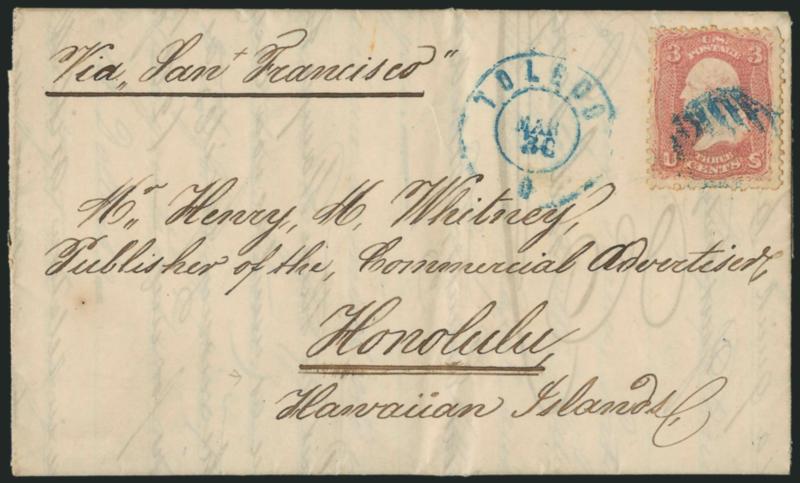 Via „San Francisco"
TOLEDO
MAR
O
3 U.S. 3
POSTAGE
U THREE S
CENTS
Mr. Henry, M. Whitney,
Publisher of the, Commercial Advertiser,
Honolulu,
Hawaiian Islands,